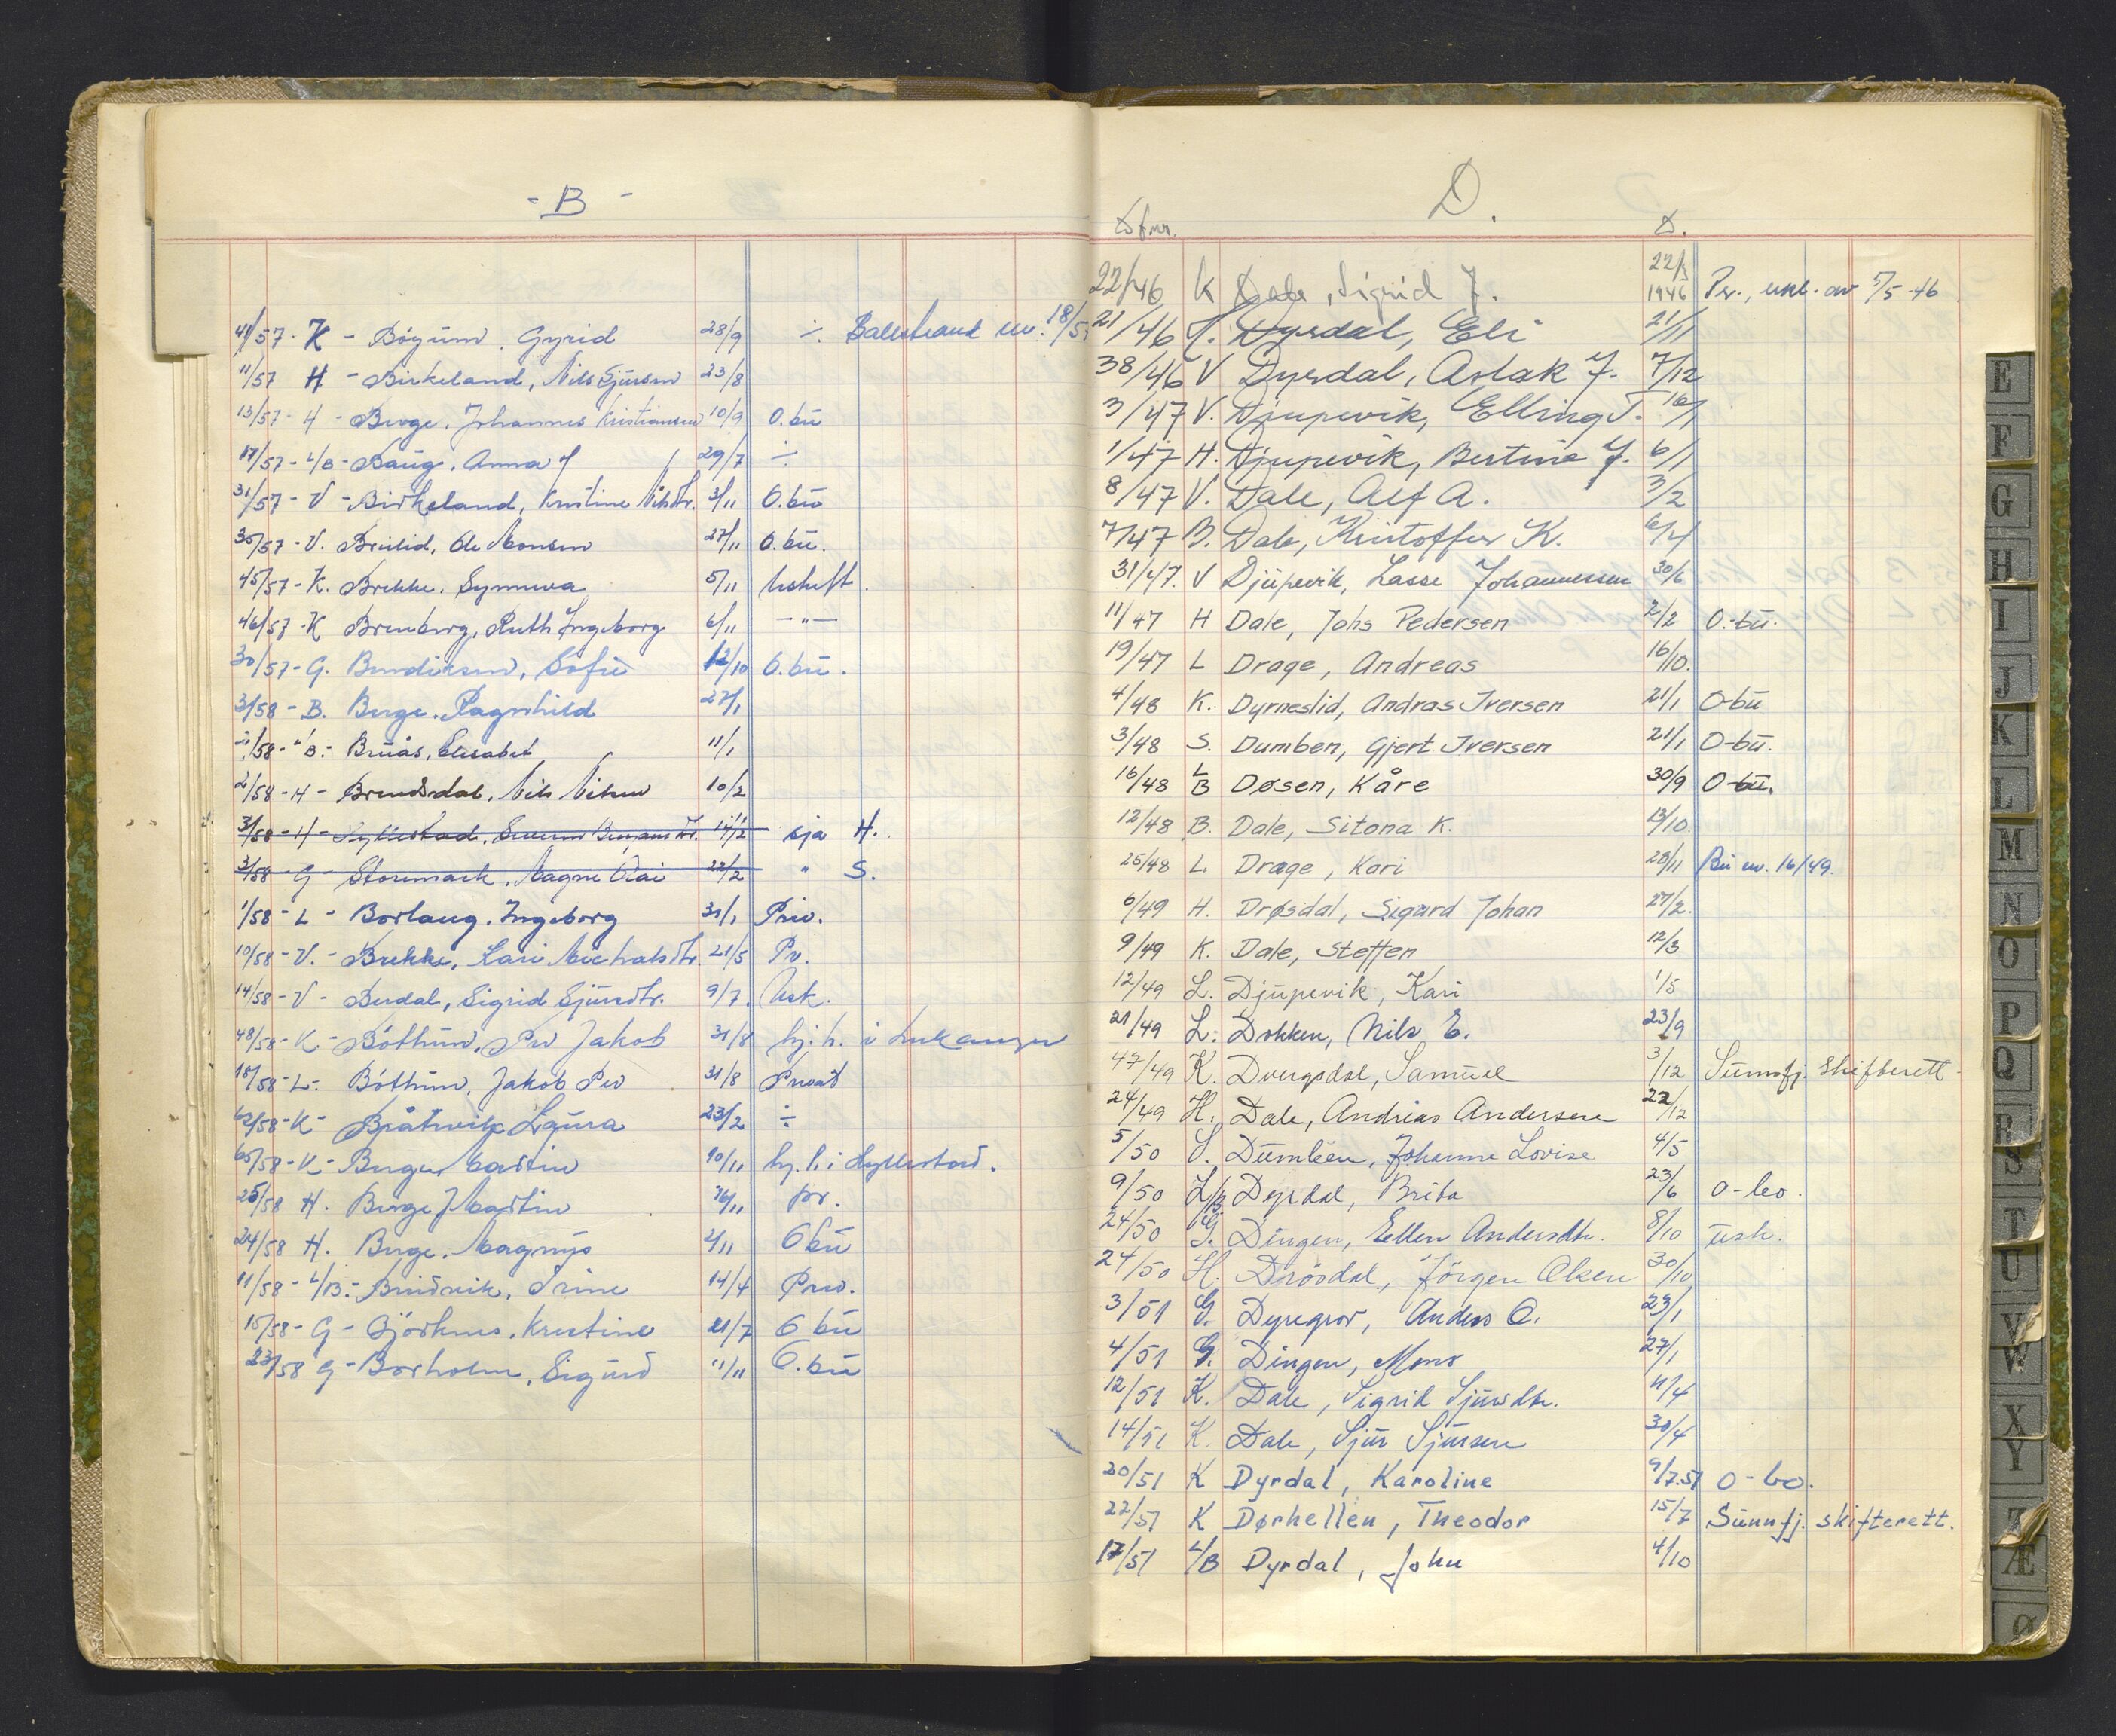 - B -
41/57 - K - Böyum, Gyrid 28/9 ÷ Balestrand 18/5
11/57 H - Birkeland, Nils Sjursen 23/8
13/57 - H - Berge, Johannes Kristiansen 10/9 O.bü
17/57 - L/B - Baug, Anna J 29/7 ÷
31/57 - V - Birkeland, Kristine Nilsdtr. 3/11 O.bü
35/57 - V. Breilid, Ole Monsen 27/11 O.bü.
45/57 - K. Brekke, Synneva 5/11 Uskift.
46/57 - K Brenborg, Ruth Ingeborg 6/11 —"—
30/57 - G. Bendiksen, Sofie 12/10 O.bü.
3/58 - B. Berge, Ragnhild 27/1
/58 - L/B - Bruås, Elisabet 11/1
2/58 - H - Brendsdal, Nils Nilsen 10/2
3/58 - H - Hyllestad, 17/2 sja H.
3/58 - G Storemark, Magne 22/2 " S.
1/58 - L - Borlaug, Ingeborg 31/1 Priv.
10/58 - V. - Brekke, Kari Michalsdtr. 21/5 Pr.
14/58 - V - Berdal, Sigrid Sjursdtr. 9/7. Usk.
48/58 - K - Böthun, Per Jakob 31/8 hj.h. i Leikanger
18/58 - L - Böthun, Jakob Per 31/8 Privat
62/58 - K - Bråtvik, Laura 23/2 ÷
65/58 - K - Berger, Martin 10/11 hj.h. i Hyllestad.
25/58 H. Berge, J Martin 16/11 pr.
24/58 H. Berge, Magnus 2/11 O bü
11/58 - L/B. - Bruvik, Trine 14/4 Priv.
15/58 - G - Björknes, Kristine 21/7 O bü
23/58 G - Borholm, Sigurd 11/11 O.bü
D.
Dfnr. D.
22/46 K Dale, Sigrid J. 22/3 1946 Pr., utl. av 7/5-46
21/46 S. Dyrdal, Eli 21/11
38/46 V Dyrdal, Aslak J. 7/12
3/47 V. Djupevik, Elling T. 16/1
1/47 H. Djupevik, Bertine J. 6/1
8/47 V. Dale, Alf A. 3/2
7/47 B. Dale, Kristoffer K. 6/4
31/47. V Djüpevik, Lasse Johannessen 30/6
11/47 H Dale, Johs Pedersen 2/2 O.-bü.
19/47 L Drage, Andreas 16/10.
4/48 K. Dyrneslid, Andras Iversen 21/1 O-bü
3/48 S. Dumben, Gjert Iversen 21/1 O-bü.
16/48 L/B Døsen, Kåre 30/9 O-bü.
12/48 B. Dale, Sitona K. 13/10.
25/48 L. Drage, Kari 28/11 Bü nr. 16/49.
6/49 H. Drøsdal, Sigurd Johan 27/2.
9/49 K. Dale, Steffen 12/3
12/49 L. Djüpevik, Kari 1/5
21/49 L. Dokken, Nils E. 23/9
47/49 K. Dvergsdal, Samuel 3/12 Sunnfj. skifterett.
24/49 H. Dale, Andrias Andersen 22/12
5/50 S. Dumbeen, Johanne Lovise 4/5
9/50 L/B Dyrdal, Brita 23/6 o-bo.
24/50 G. Dingen, Ellen Andersdtr. 8/10 usk.
24/50 H. Drösdal, Jörgen Olsen 30/10
3/51 G. Dyregrov, Anders O. 23/1
4/51 G. Dingen, Mons 27/1
12/51 K. Dale, Sigrid Sjursdtr. 11/4
14/51 K. Dale, Sjur Sjursen 30/4
20/51 K Dyrdal, Karoline 9/7.51 o-bo.
22/51 K Dørhellen, Theodor 15/7 Sunnfj. skifterett.
17/51 L/B Dyrdal, John 4/10
E
F
G
H
I
J
K
L
M
N
O
P
Q
R
S
T
U
V
W
X
Y
Z
Æ
Ø